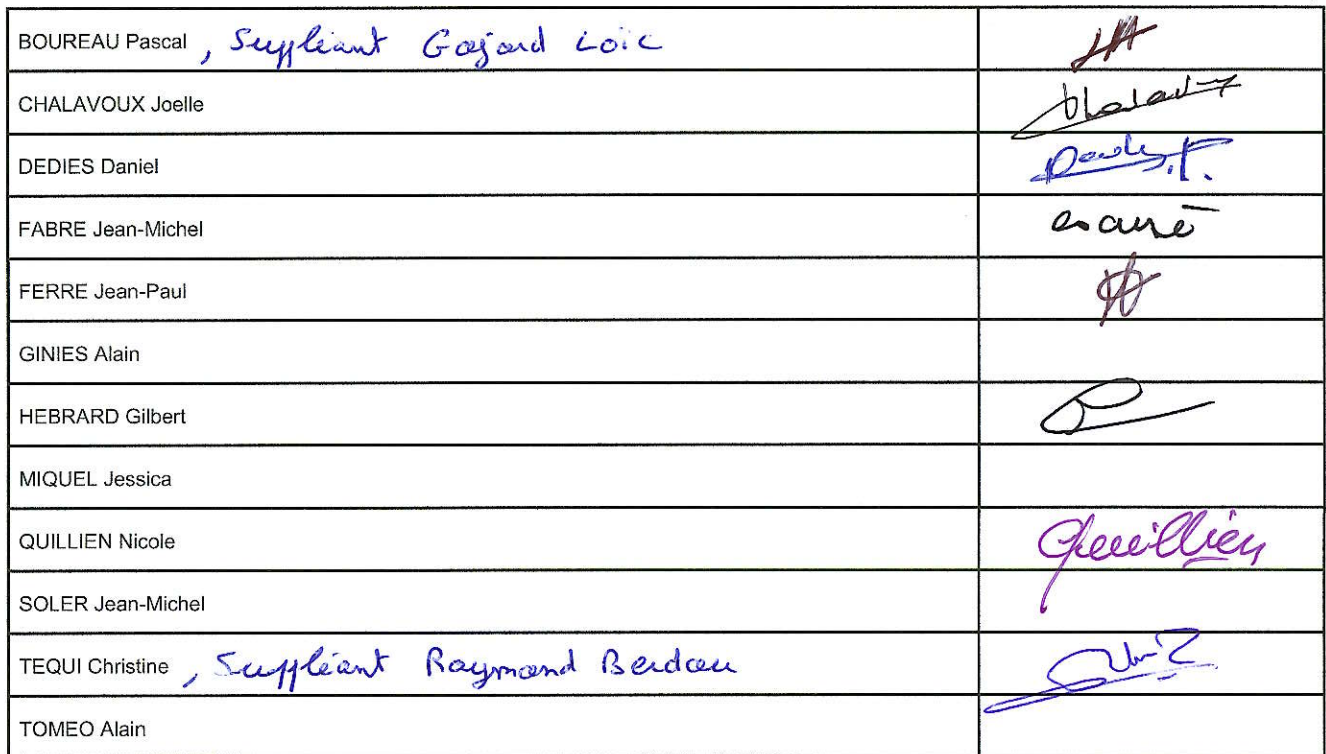 BOUREAU Pascal , Suppléant Gojard Loïc
CHALAVOUX Joelle
DEDIES Daniel
FABRE Jean-Michel excusé
FERRE Jean-Paul
GINIES Alain
HEBRARD Gilbert
MIQUEL Jessica
QUILLIEN Nicole Quillien
SOLER Jean-Michel
TEQUI Christine , Suppléant Raymond Berdou
TOMEO Alain